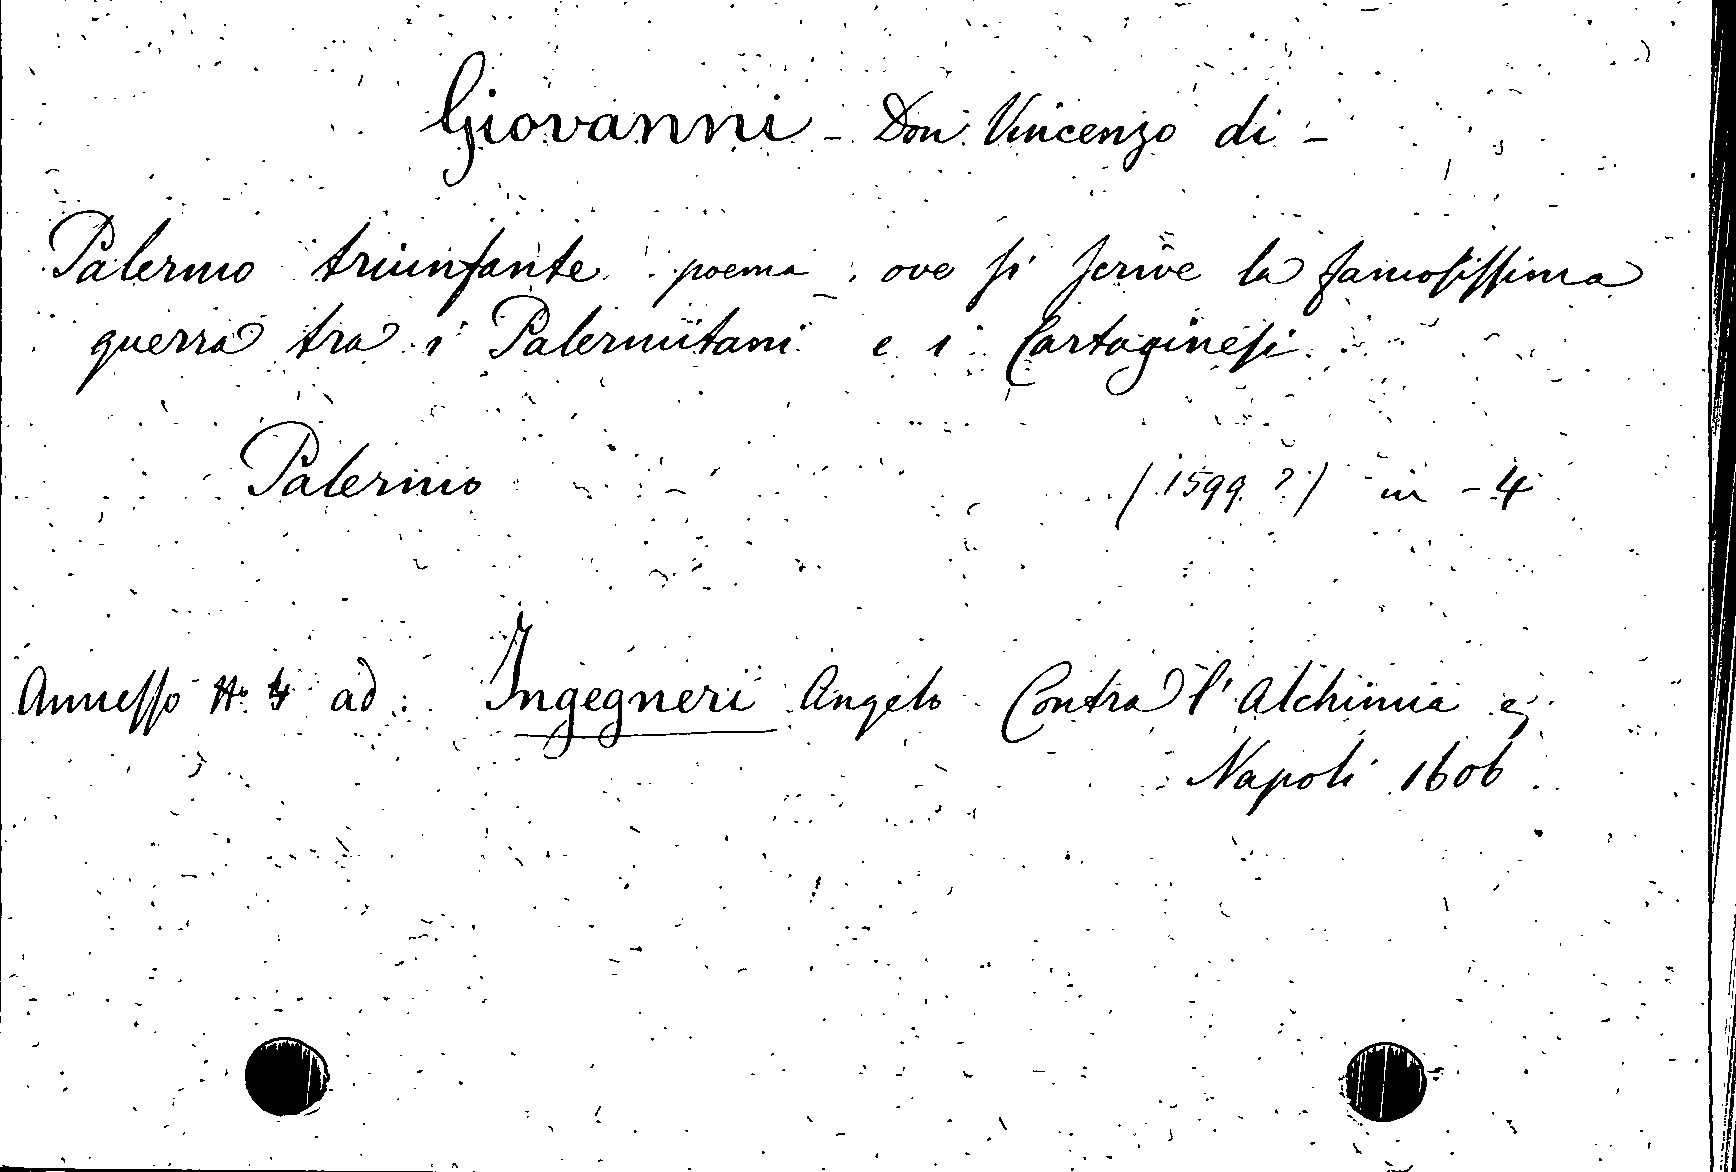 Giovanni - Don Vincenzo di -
Palermo triunfante poema, ove si scrive la famosissima
guerra tra i Palermitani e i Cartaginesi
Palermo (1599 ?) in -4
Annesso No 4 ad: Ingegneri Angelo Contra l'Alchimia
Napoli 1606